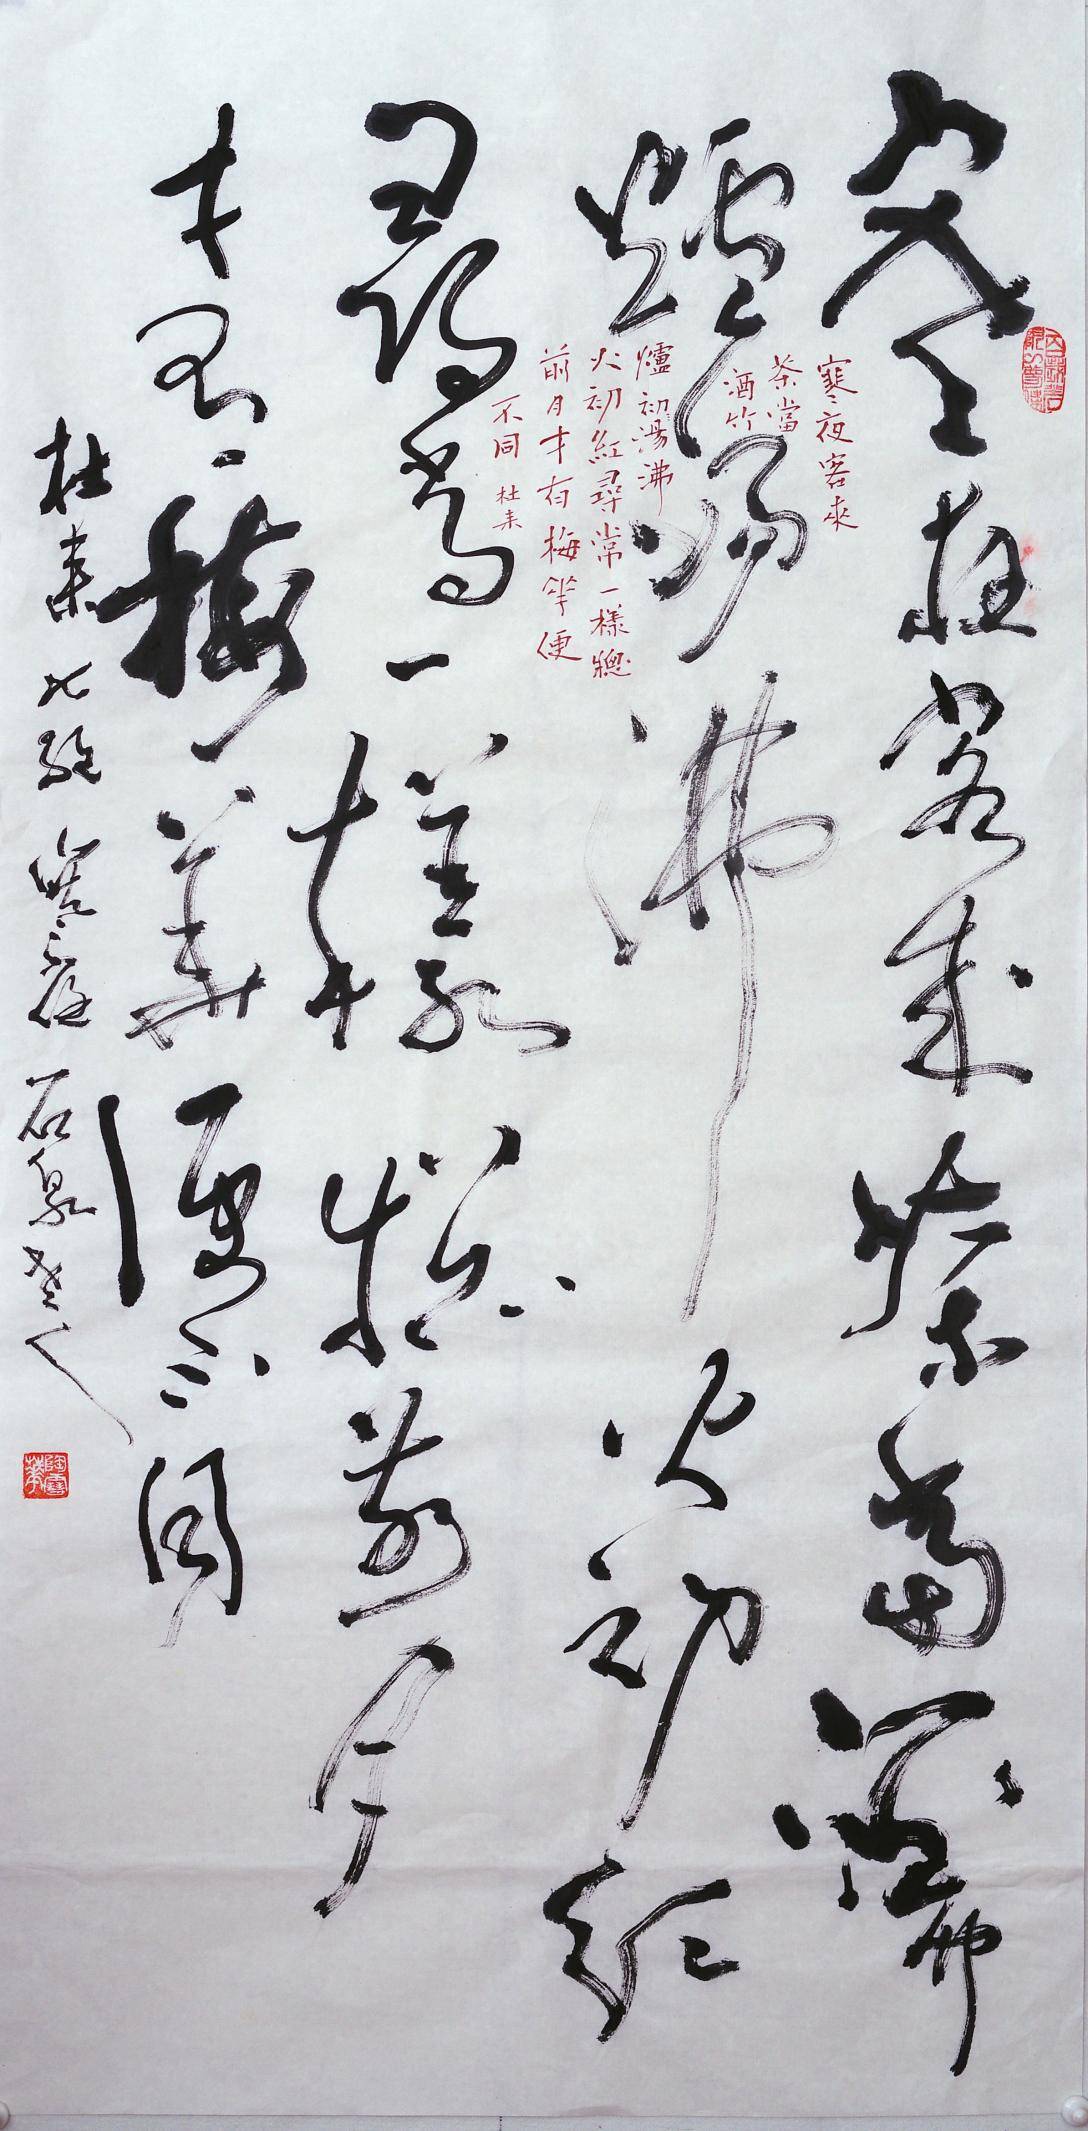 寒夜客來茶當酒竹
爐湯沸火初紅
尋常一樣窓前月
才有梅華便不同
杜耒七絕寒夜 石泉老人
寒夜客來
茶當
酒竹
爐初湯沸
火初紅尋常一樣窗
前月才有梅華便
不同 杜耒